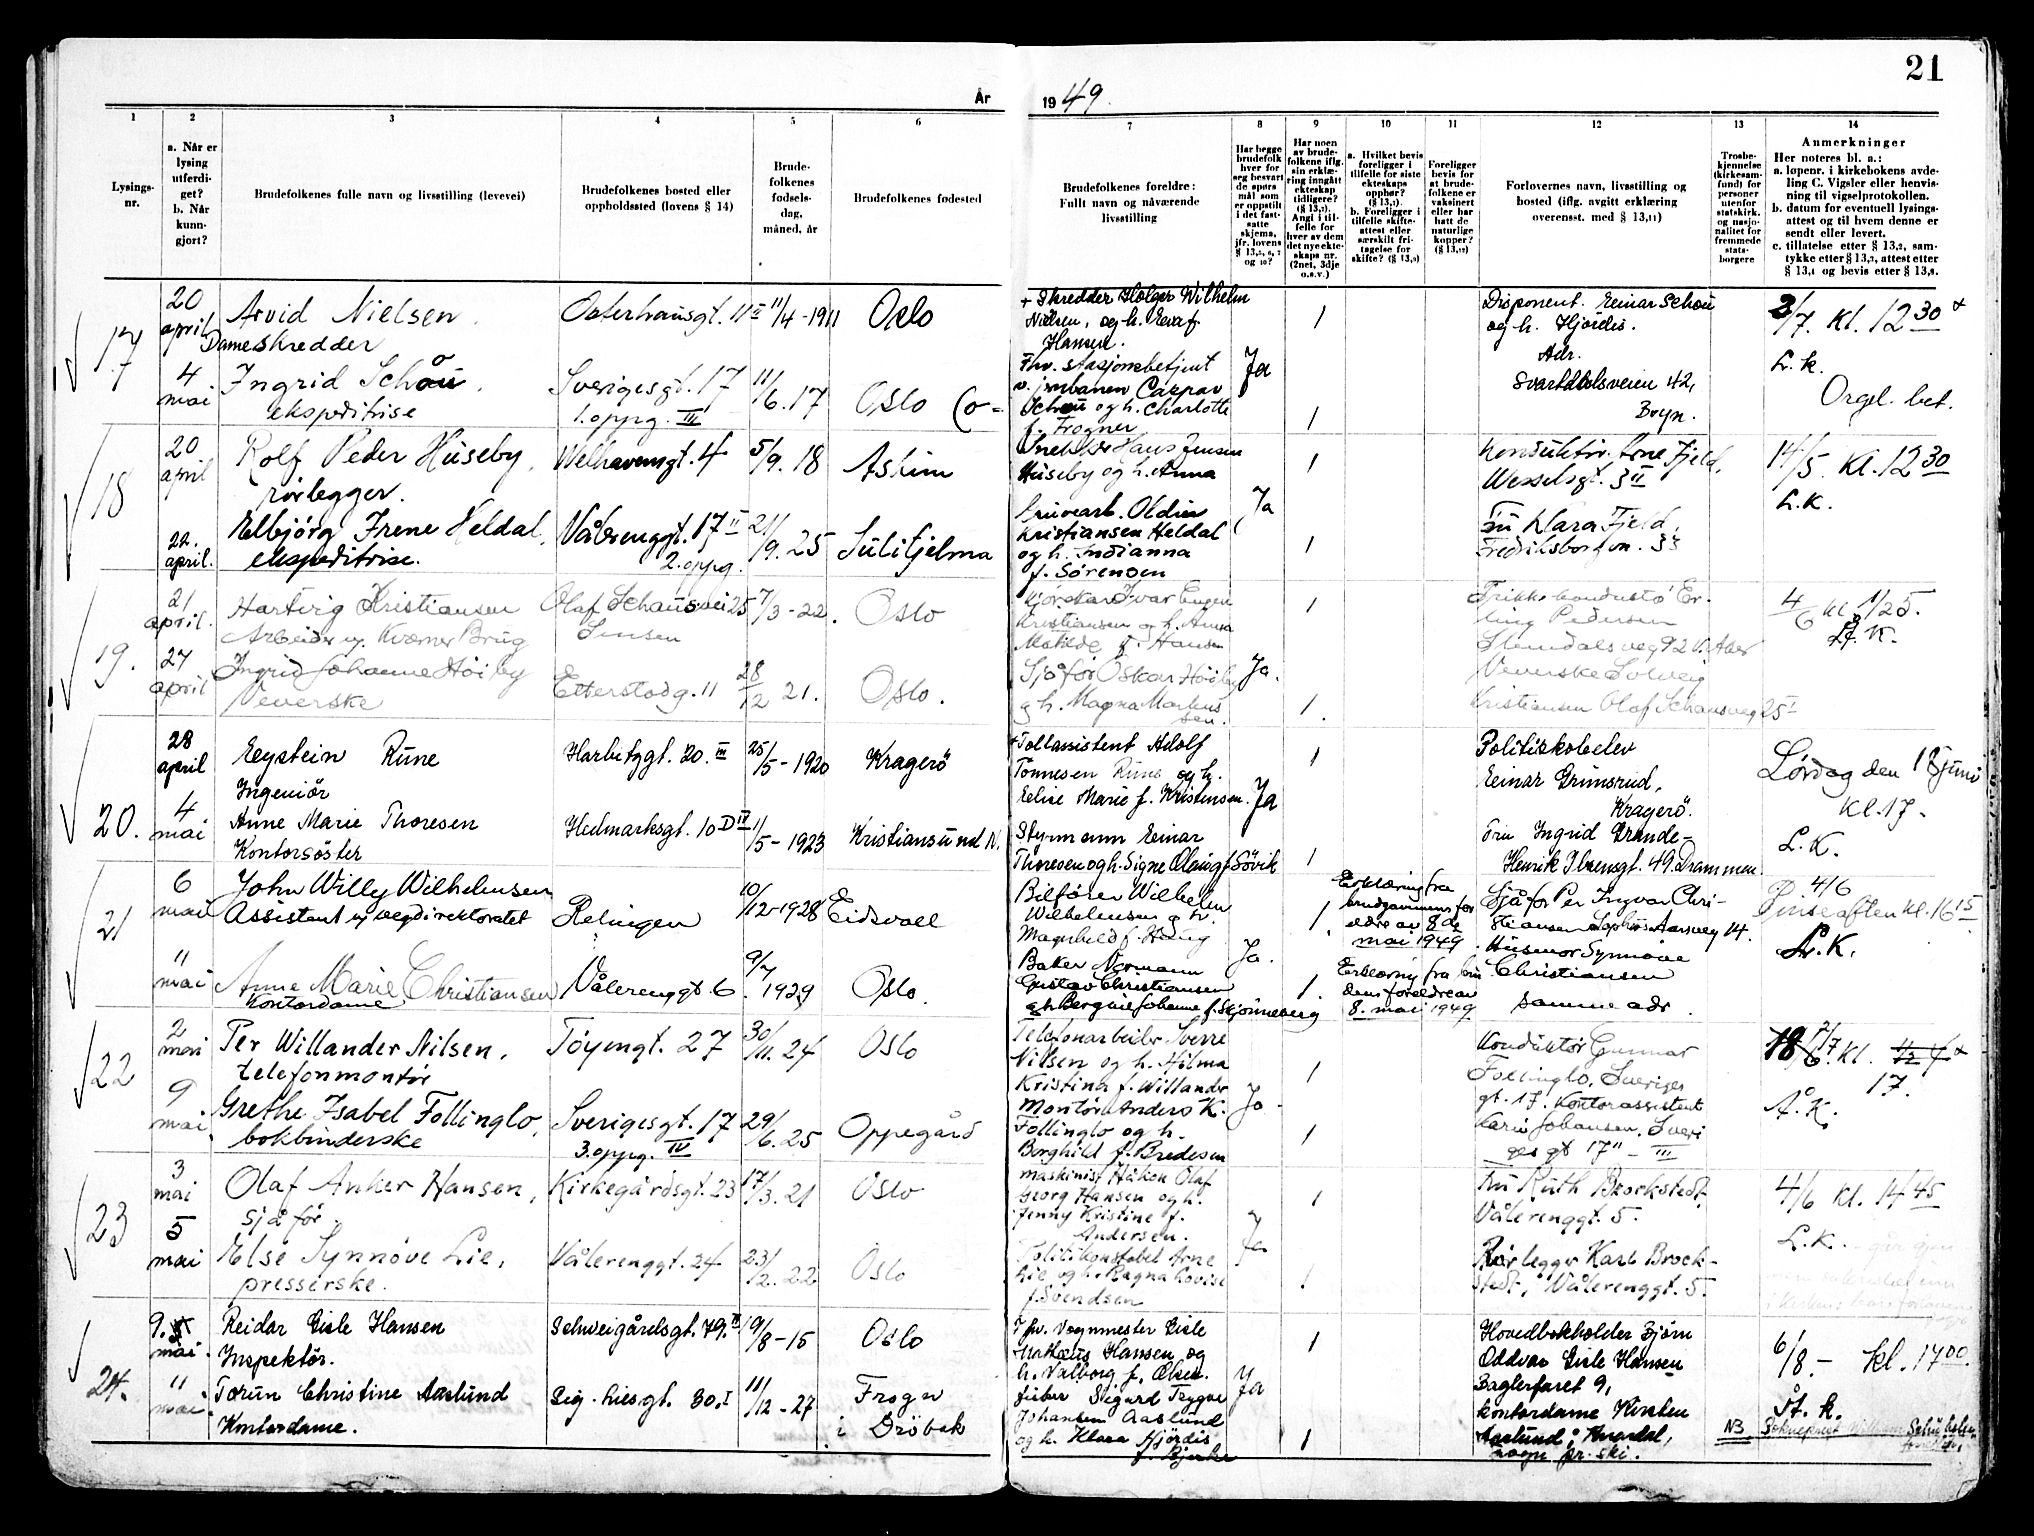 21
År
19 49.
1
2
3
4
5
6
7
8
9
10
11
12
13
14
Lysings-
nr.
a. Når er
lysing
utferdi-
get?
b. Når
kunn-
gjort?
Brudefolkenes fulle navn og livsstilling (levevei)
Brudefolkenes bosted eller
oppholdssted (lovens § 14)
Brude-
folkenes
fødsels-
dag,
måned, år
Brudefolkenes fødested
Brudefolkenes foreldre:
Fullt navn og nåværende
livsstilling
Har begge
brudefolk
hver for
seg besvart
de spørs-
mål som
er oppstilt
i det fast-
satte
skjema,
jfr. lovens
§ 13,5, 6, 7
og 10?
Har noen
av brude-
folkene iflg.
sin erklæ-
ring inngått
ekteskap
tidligere?
(§ 13,7).
Angi i til-
felle for
hver av dem
det nye ekte-
skaps nr.
(2net, 3dje
o.s.v.)
a. Hvilket bevis
foreligger i
tilfelle for siste
ekteskaps
opphør?
(§ 13,7).
b. Foreligger i
tilfelle skifte-
attest eller
særskilt fri-
tagelse for
skifte? (§ 13,9)
Foreligger
bevis for
at brude-
folkene er
vaksinert
eller har
hatt de
naturlige
kopper?
(§ 13,12)
Forlovernes navn, livsstilling og
bosted (iflg. avgitt erklæring
overensst. med § 13,11)
Trosbe-
kjennelse
(kirkesam-
fund) for
personer
utenfor
statskirk.
og nasjo-
nalitet for
fremmede
stats-
borgere
Anmerkninger
Her noteres bl. a.:
a. løpenr. i kirkebokens avde-
ling C. Vigsler eller henvis-
ning til vigselprotokollen.
b. datum for eventuell lysings-
attest og til hvem denne er
sendt eller levert.
c. tillatelse etter § 13,2, sam-
tykke etter § 13,3, attest etter
§ 13,4 og bevis etter § 13,8.
17
20
april
4
mai
Arvid Nielsen
Dameskredder
Ingrid Schou
ekspeditrise
Osterhausgt. 11 II
Sverigesgt. 17
1. oppg. III
11/4-1911
11/6. 17
Oslo
Oslo
+ Skredder Holger Wilhelm
Nielsen, og h. Eva f.
Hansen.
Fhv. stasjonsbetjent
v. jernbanen Caspar
Schou og h. Charlotte
f. Frogner
Ja
1
1
Disponent. Einar Schou
og h. Hjördis.
Adr.
Svartdalsveien 42,
Bryn.
2/7. Kl. 12 30
L.k.
Orgel. bet.
18
20
april
22.
april.
Rolf Peder Huseby,
rörlegger.
Elbjörg Irene Heldal,
ekspeditrise.
Welhavensgt. 4
Vålerenggt. 17 II
2. oppg.
5/9. 18
21/9. 25
Askim
Sulitjelma
Snekker Hans Jensen
Huseby og h. Anna
Gruvearb. Oldin
Kristiansen Heldal
og h. Indianna
f. Sörensen
Ja
1
1
Konduktör. Arne Fjeld,
Wesselsgt. 3 II
Fru Klara Fjeld,
Fredriksborgvn. 33
14/5 Kl. 12 30
L.K.
19.
21
april.
27
april
Hartvig Kristiansen
Arbeider v. Kværner Brug
Ingrid Johanne Höiby
Veverske
Olaf Schousvei 25
Sinsen
Etterstadg. 11
7/3-22.
28/12 21.
Oslo
Oslo.
Kristiansen og h. Anna
Matilde f. Hansen
Sjåför Oskar Höiby
g h. Magna Martins
sen.
Ja.
1
1.
Trikkekonduktö Er-
ling Pedersen
Veverske Solveig
Kristiansen Olaf Schousveg 25 I
4/6
20.
28
april
4
mai
Eystein Rune
Ingeniör
Anne Marie Thoresen
Kontorsöster
Harbitzgt. 20. III
Hedmarksgt. 10 D IV
25/5-1920
1/5-1923
Kragerö
Kristiansund N.
+Tollassistent Adolf
Tönnesen Rune og h.
Elise Marie f. Kristensen.
Styrmann Einar
Thoresen og h. Signe Olding f Sövik
Ja
1
1
Politiskoleelev
Einar Grimsrud,
Kragerö.
Fru Ingrid Grande-
Henrik Ibsensgt. 49. Drammen
Lördag den 18 Juni
Kl. 17.
L.K.
21
6
mai
11
mai
John Willy Wilhelmsen
Assistent v/ vegdirektoratet
Anne Marie Christiansen
Kontordame
Relingen
Vålerenggt 6
10/12-1928
9/7 1929
Eidsvoll
Oslo.
Bilförer Wilhelm
Wilhelmsen g. h.
Magnhild f. Haug
Baker Normann
Gustav Christiansen
g h. Bergine Johanne f. Skjönneberg
Ja.
1.
1.
Erklæring fra
brudgommens for
eldre av 8 de
mai 1949.
Erklæring fra bru
dens foreldre av
8. mai 1949
Sjåför Per Ingvar Chri-
stiansen Sophus Aarsveg 14.
Husmor Synnöve
Christiansen
samme adr.
4/6
Pinseaften Kl. 16 15
Å.K.
22
2
mai
9
mai
Per Willander Nilsen,
telefonmontör
Grethe Isabel Follinglo,
bokbinderske
Töyengt. 27
Sverigesgt. 17
3. oppg. IV
30/11. 24
29/6. 25
Oslo
Oppegård
Telefonarbeider Sverre
Nilsen og h. Hilma
Kristina f. Willander
Montör Anders K.
Follinglo og h.
Borghild f. Bredesen
Ja.
1
1
Konduktör Gunnar
Follinglo, Sveriges
gt. 17. Kontorassistent
Karin Johansen, Sveri
ges gt 17" - III
18/6 2/7 Kl. 1/2 4
17.
Å.K.
23
3
mai
5
mai
Olaf Anker Hansen,
sjåför.
Else Synnöve Lie,
presserske.
Kirkegårdsgt. 23
Vålerenggt. 24
17/3. 21
23/2. 22
Oslo
Oslo
maskinist Håkon Olaf
Georg Hansen og h.
Jenny Kristine f.
Andersen.
Politikonstabel Arne
Lie og h. Ragna Lovise
f. Svendsen
Ja
1
1
Fru Ruth Brockstedt,
Vålerenggt. 5.
Rörlegger Karl Brock-
stedt, Vålerenggt. 5.
4/6 Kl. 14 45
L.K.
24.
9.
mai.
11
mai
Reidar Eisle Hansen
Inspektör.
Torun Christine Aaslund
Kontordame.
Schweigårdsgt. 79. II
Eig. Liesgt. 30. I
19/8-15
11/12-27
Oslo
Frogn
i Dröbak
Fhv. Vognmester Eisle
Markus Hansen og
h. Valborg f. Olsen.
fisker Sigurd Trygve
Johansen Aaslund
og h. Klara Hjördis
f. Bjerke
Ja
1
1
Hovedbokholder Björn
Oddvar Eisle Hansen
Baglerfaret 9,
kontordame Kirsten
Aaslund,
Frogn pr. Ski.
6/8- kl. 17 00.
St. k.
NB